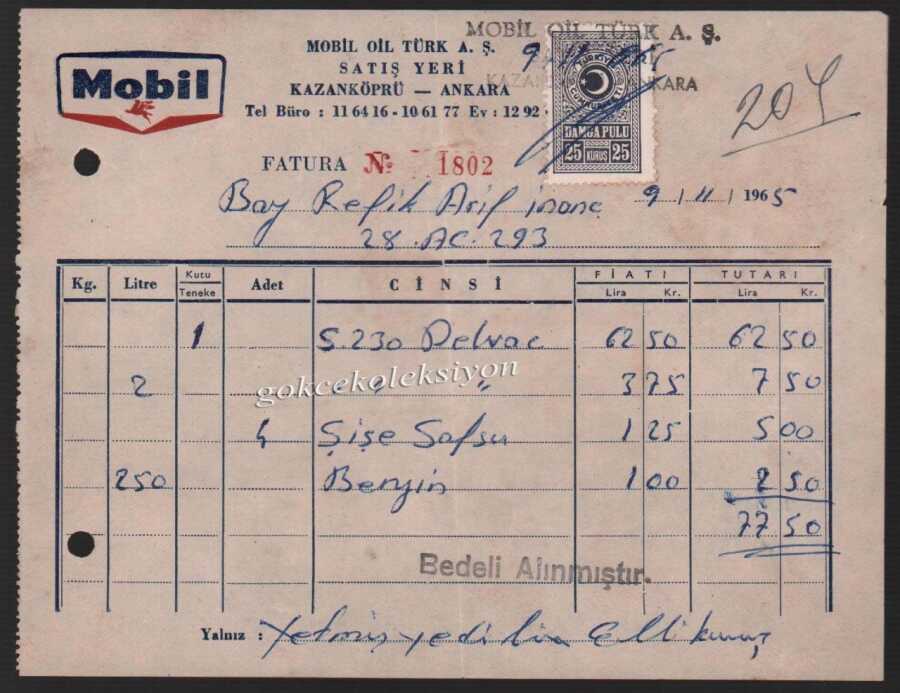 MOBİL OİL TÜRK A. Ş.
Mobil
MOBİL OİL TÜRK A. Ş.
SATIŞ YERİ
KAZANKÖPRÜ — ANKARA
Tel Büro : 11 64 16 - 10 61 77 Ev : 12 92
ANKARA
TÜRKİYE CUMHURİYETİ
DAMGA PULU
25 KURUŞ 25
204
FATURA № 1802
9 / 11 / 1965
Bay Refik Arif İnanç
28.AC.293
Kg. Litre Kutu Teneke Adet CİNSİ FİATI Lira Kr. TUTARI Lira Kr.
1 S.230 Delvac 62 50 62 50
2 " " 3 75 7 50
gokcekoleksiyon
4 Şişe Safsu 1 25 5 00
250 Benzin 1 00 2 50
77 50
Bedeli Alınmıştır.
Yalnız : Yetmiş yedi lira Elli kuruş